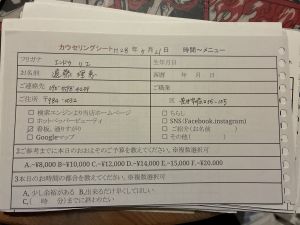 カウセリングシート H28年5月21日 時間〜メニュー
フリガナ エンドウ リエ 生年月日
お名前 遠藤 理恵 西暦 年 月 日
ご連絡先 ご職業
ご住所 〒984-0032
□ 検索エンジンより当店ホームページ □ ちらし
□ ホットペッパービューティ □ SNS(Facebook,instagram)
☑ 看板、通りすがり □ ご紹介(お名前 )
□ Googleマップ □ その他(
2ご参考までに本日のおおよそのご予算を教えてください。※複数選択可
A.~¥8,000 B~¥10,000 C.~¥12,000 D.~¥14,000 E.~15,000 F.~¥20.000
3本日のお時間の都合を教えてください。※複数選択可
A, 少し余裕がある B,出来るだけ早くしてほしい
C,( 時 分)までに終わりたい